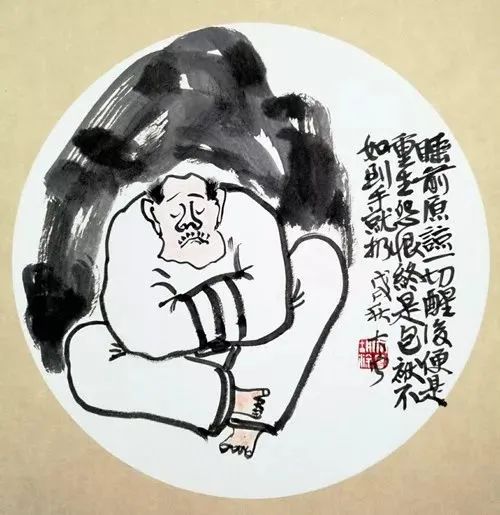 睡前原諒一切醒後便是
重生怨恨終是包袱不
如到手就扔
戊戌秋